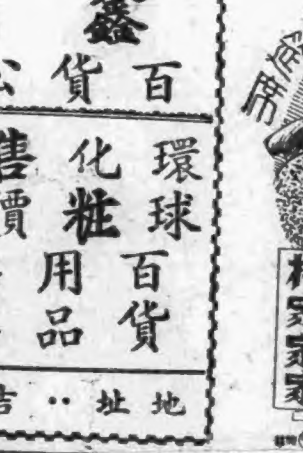 鑫
百貨公
環球百貨
化粧用品
售價
地址：吉
筵席